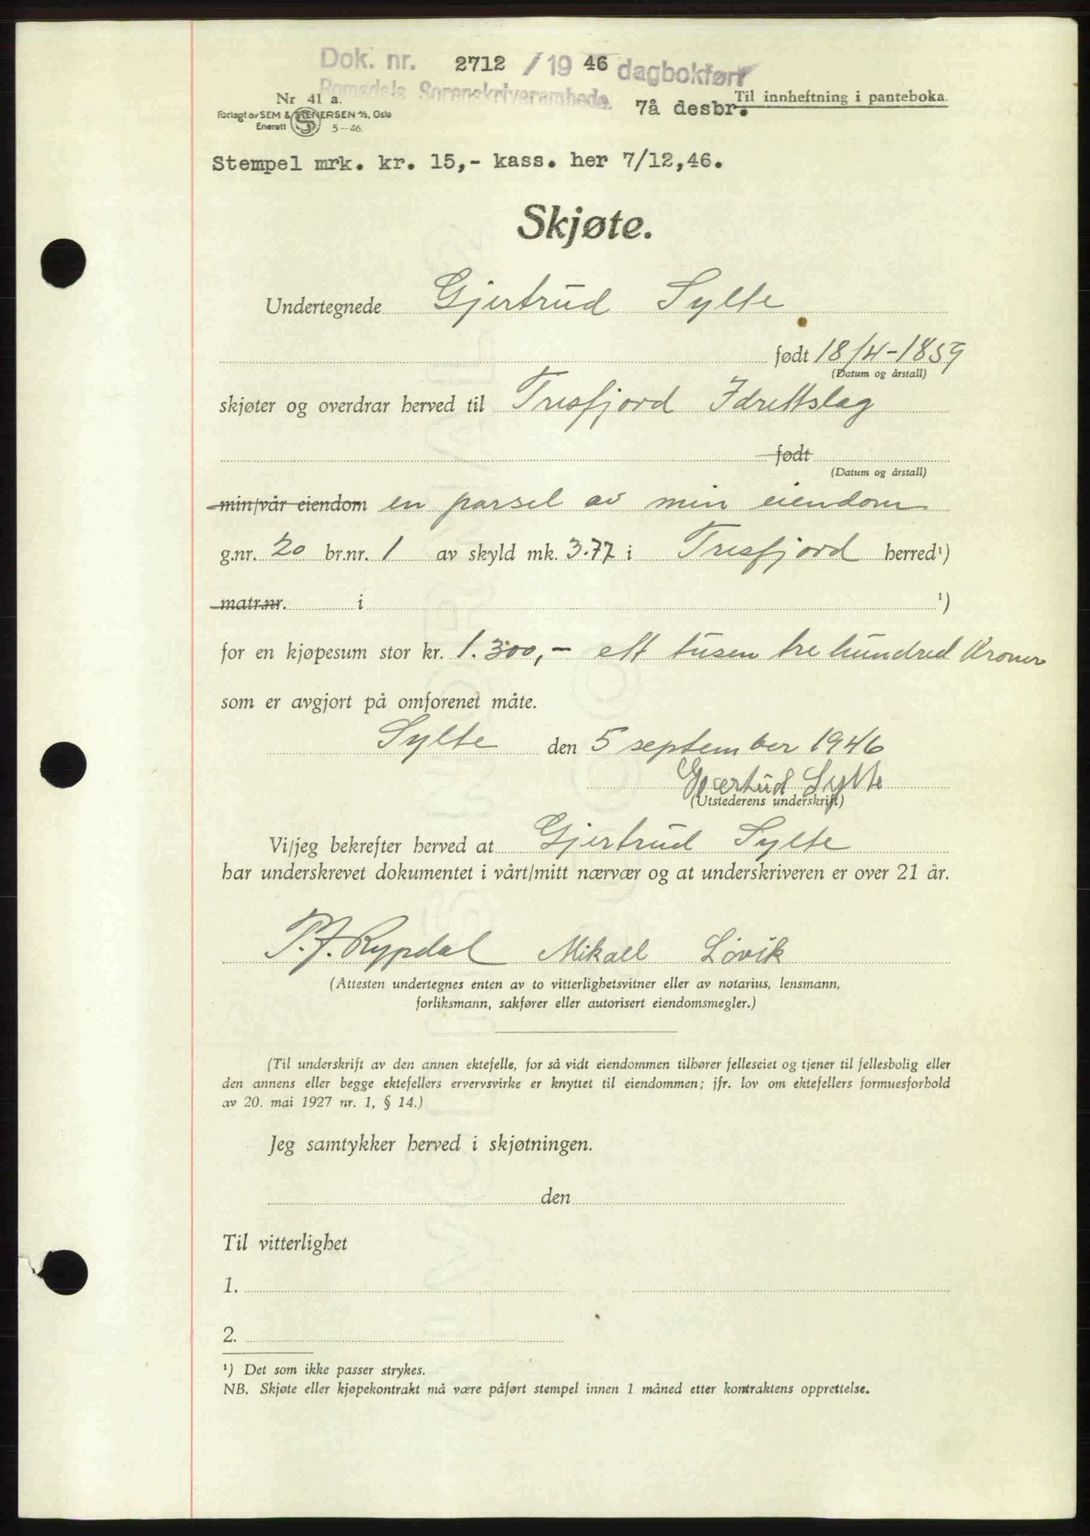 Dok. nr. 2712 / 19 46 dagbokført
Romsdals Sorenskriverembede. 7å desbr.
Til innheftning i panteboka.
Nr 41 a.
Forlagt av SEM & STENERSEN A/S, Oslo
Enerett S 5-46.
Stempel mrk. kr. 15,- kass. her 7/12,46.
Skjøte.
Undertegnede Gjertrud Sylte
født 18/4-1859
(Datum og årstall)
skjøter og overdrar herved til Tresfjord Idrettslag
født
(Datum og årstall)
min/vår eiendom en parsel av min eiendom
g.nr. 20 br.nr. 1 av skyld mk. 3.77 i Tresfjord herred¹)
matr.nr. i ¹)
for en kjøpesum stor kr. 1.300,- ett tusen tre hundred Kroner
som er avgjort på omforenet måte.
Sylte den 5 september 1946
Gjertrud Sylte
(Utstederens underskrift)
Vi/jeg bekrefter herved at Gjertrud Sylte
har underskrevet dokumentet i vårt/mitt nærvær og at underskriveren er over 21 år.
P. J. Rypdal Mikall Løvik
(Attesten undertegnes enten av to vitterlighetsvitner eller av notarius, lensmann,
forliksmann, sakfører eller autorisert eiendomsmegler.)
(Til underskrift av den annen ektefelle, for så vidt eiendommen tilhører felleseiet og tjener til fellesbolig eller
den annens eller begge ektefellers ervervsvirke er knyttet til eiendommen; jfr. lov om ektefellers formuesforhold
av 20. mai 1927 nr. 1, § 14.)
Jeg samtykker herved i skjøtningen.
den
Til vitterlighet
1.
2.
¹) Det som ikke passer strykes.
NB. Skjøte eller kjøpekontrakt må være påført stempel innen 1 måned etter kontraktens opprettelse.